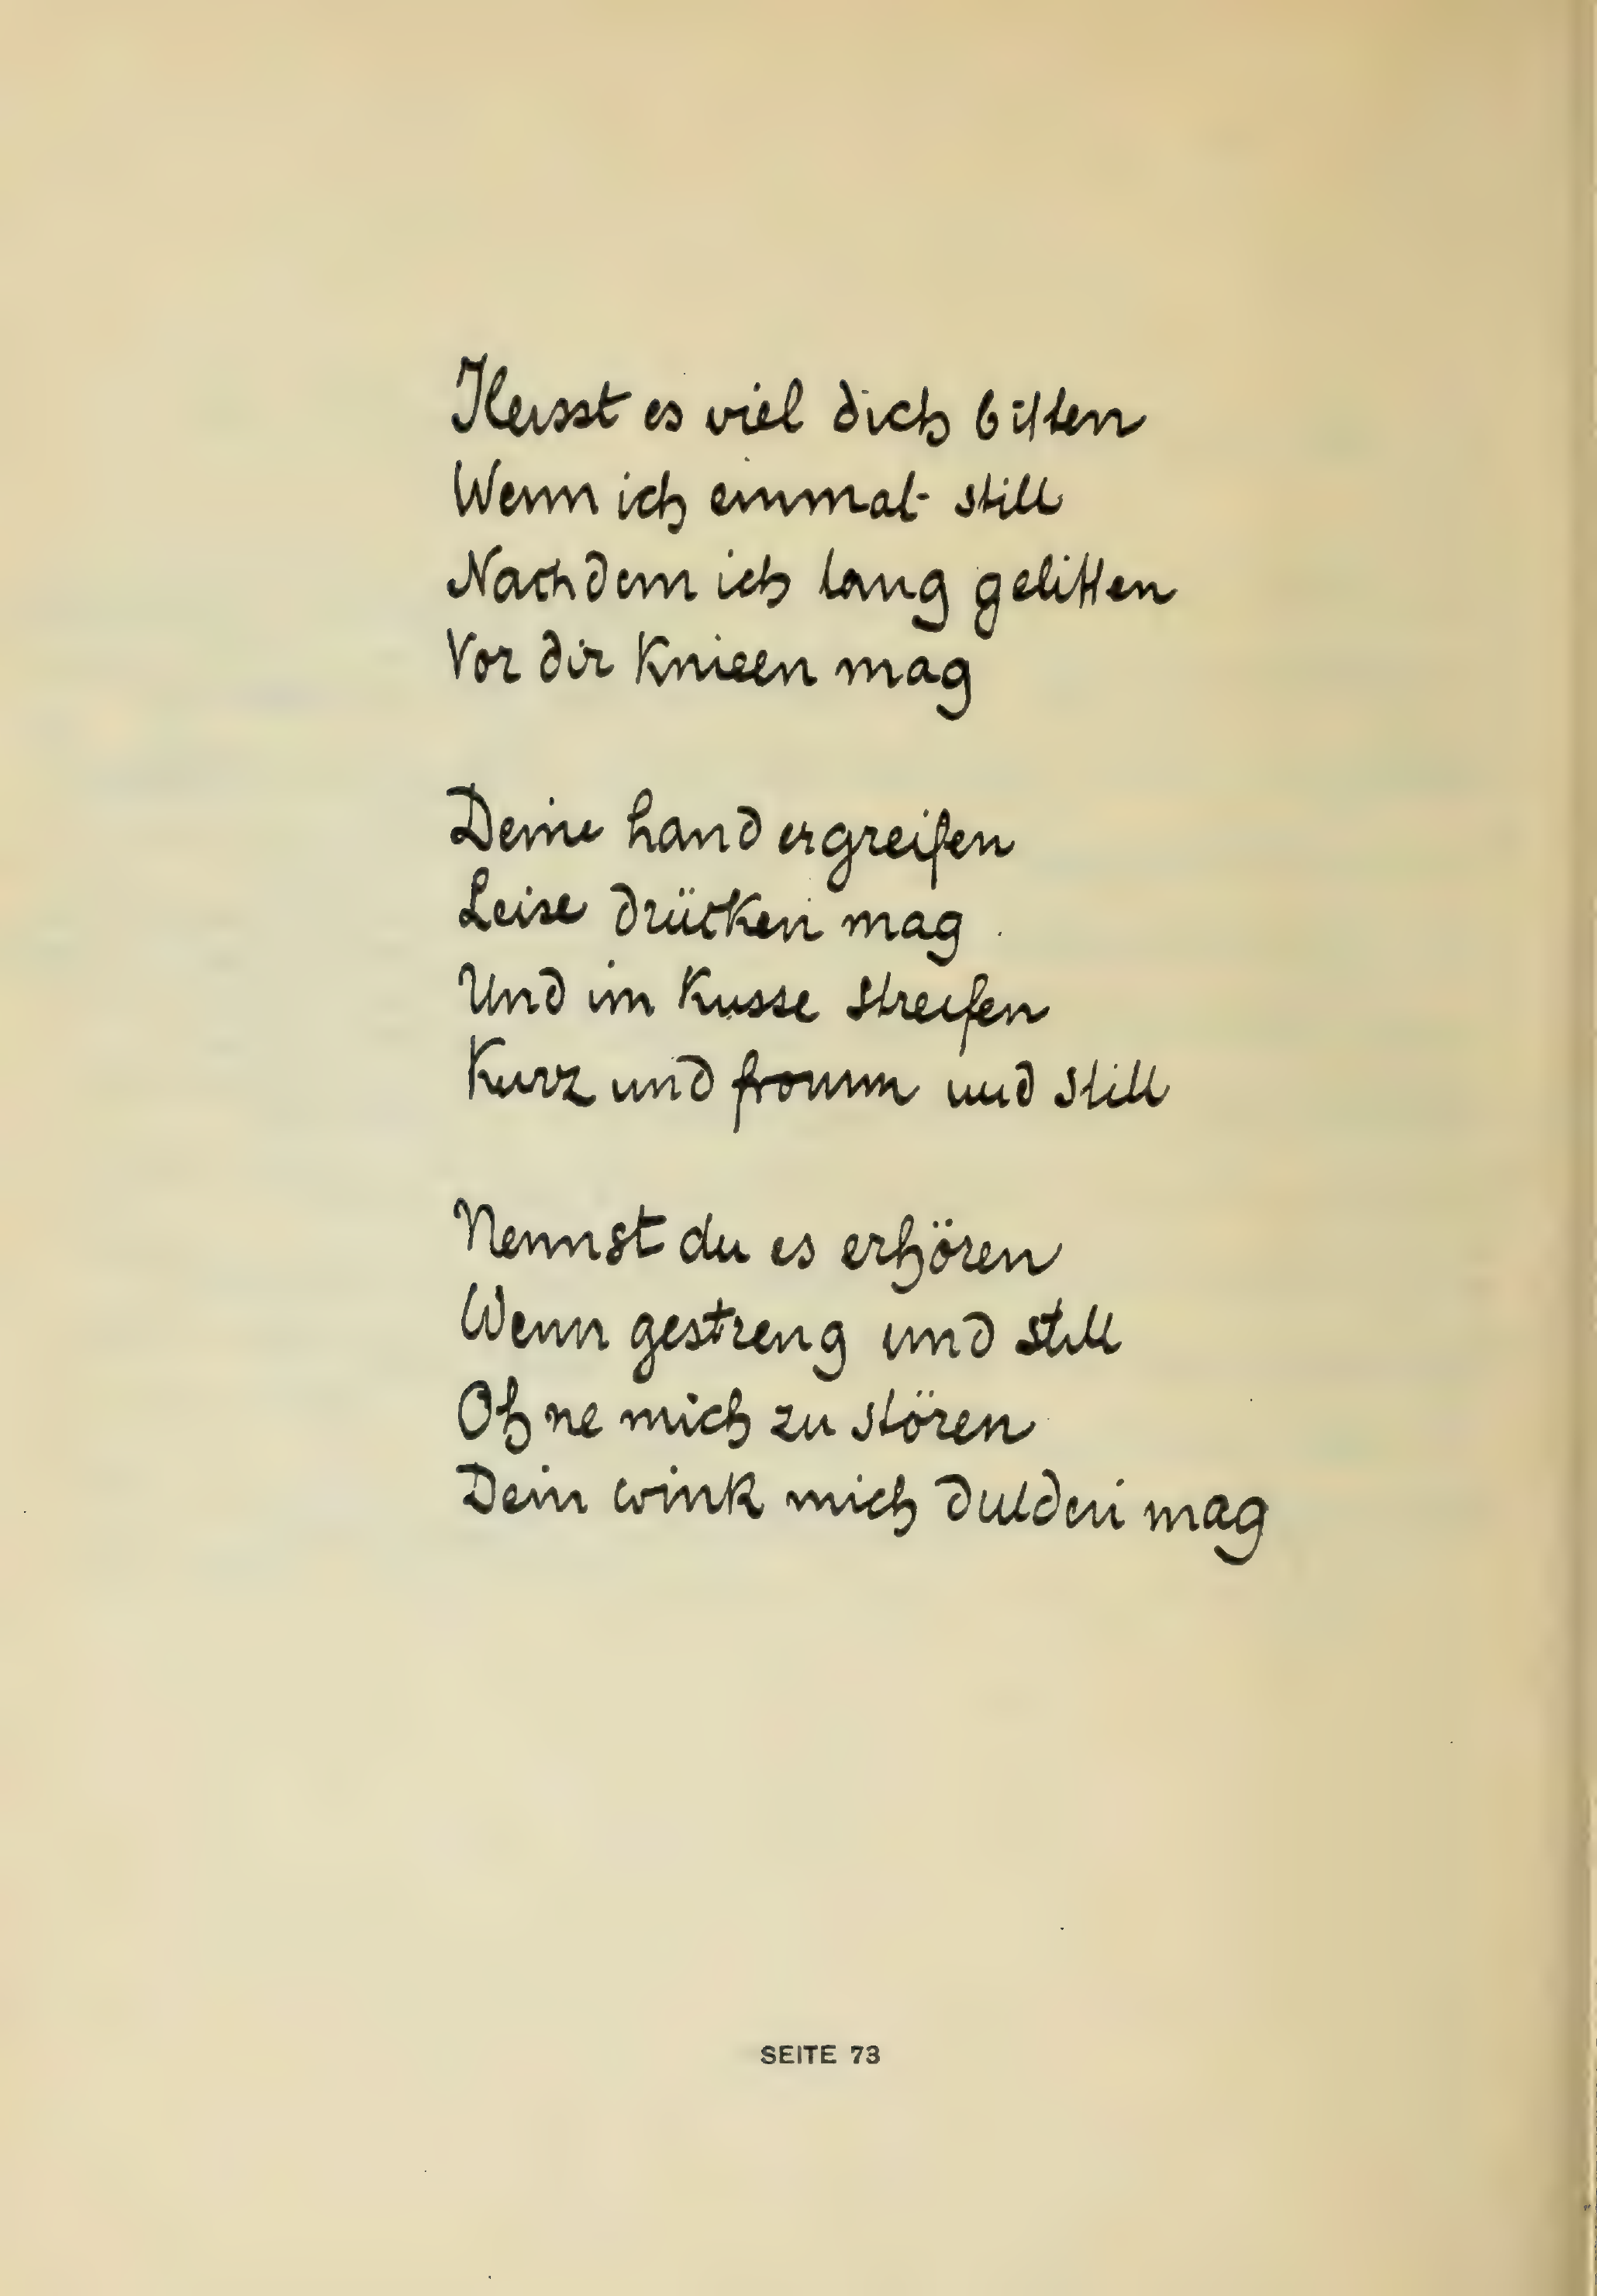 Heisst es viel dich bitten
Wenn ich einmal still
Nachdem ich lang gelitten
Vor dir knieen mag
Deine hand ergreifen
Leise drücken mag
Und im kusse streifen
Kurz und fromm und still
Nennst du es erhören
Wenn gestreng und still
Ohne mich zu stören
Dein wink mich dulden mag
SEITE 73